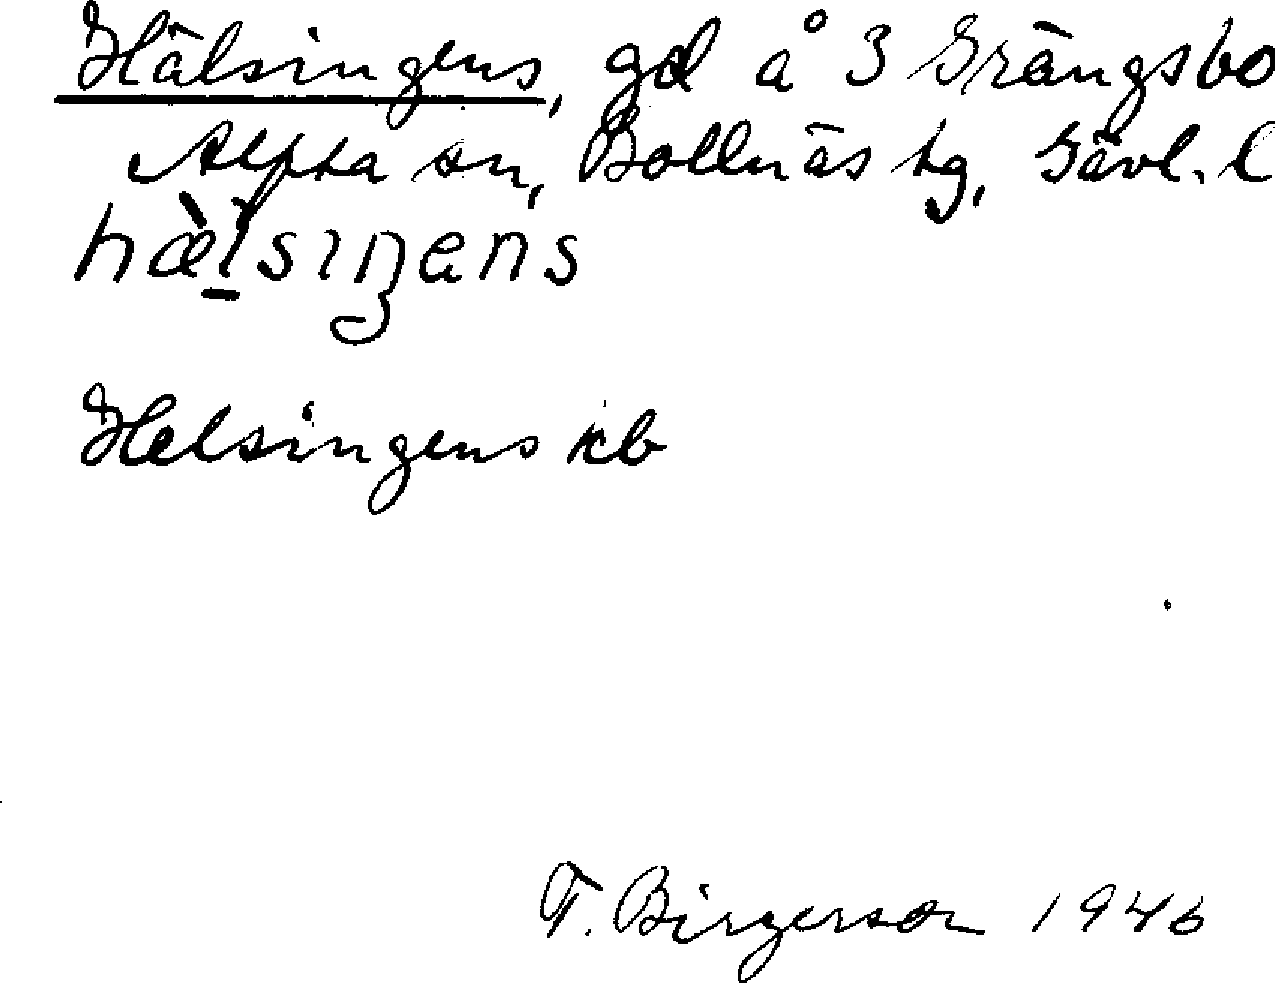 Hälsingens, gd å 3 Grängsbo
Alfta sn, Bollnäs tg, Gävl. l
hæ̀lsiŋens
Helsingens kb
T. Birgerson 1946